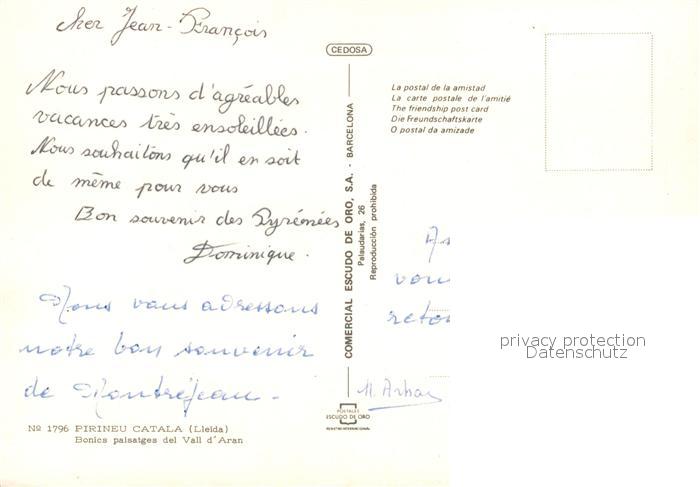 Cher Jean-François
Nous passons d'agréables
vacances très ensoleillées.
Nous souhaitons qu'il en soit
de même pour vous
Bon souvenir des Pyrénées
Dominique.
Nous vous adressons
notre bon souvenir
de Montréjeau.
Nº 1796 PIRINEU CATALA (Lleida)
Bonics paisatges del Vall d'Aran
CEDOSA
COMERCIAL ESCUDO DE ORO, S.A. - BARCELONA
Palaudarias, 26
Reproducción prohibida
POSTALES
ESCUDO DE ORO
REGISTRO INTERNACIONAL
La postal de la amistad
La carte postale de l'amitié
The friendship post card
Die Freundschaftskarte
O postal da amizade
vou
reto
privacy protection
Datenschutz